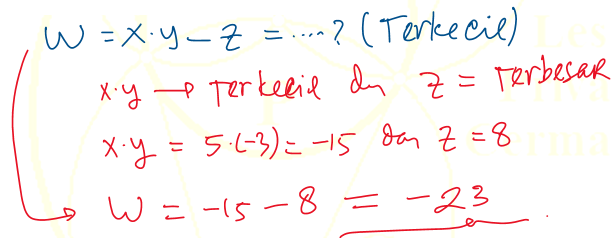 W = x.y - z = ....? (Terkecil)
x.y → Terkecil dn z = Terbesar
x.y = 5.(-3) = -15 dan z = 8
W = -15 - 8 = -23.